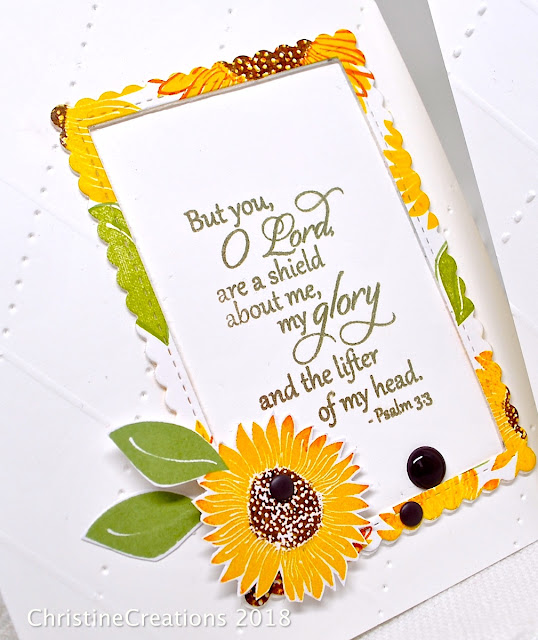 But you,
O Lord,
are a shield
about me,
my glory
and the lifter
of my head.
- Psalm 3:3
ChristineCreations 2018